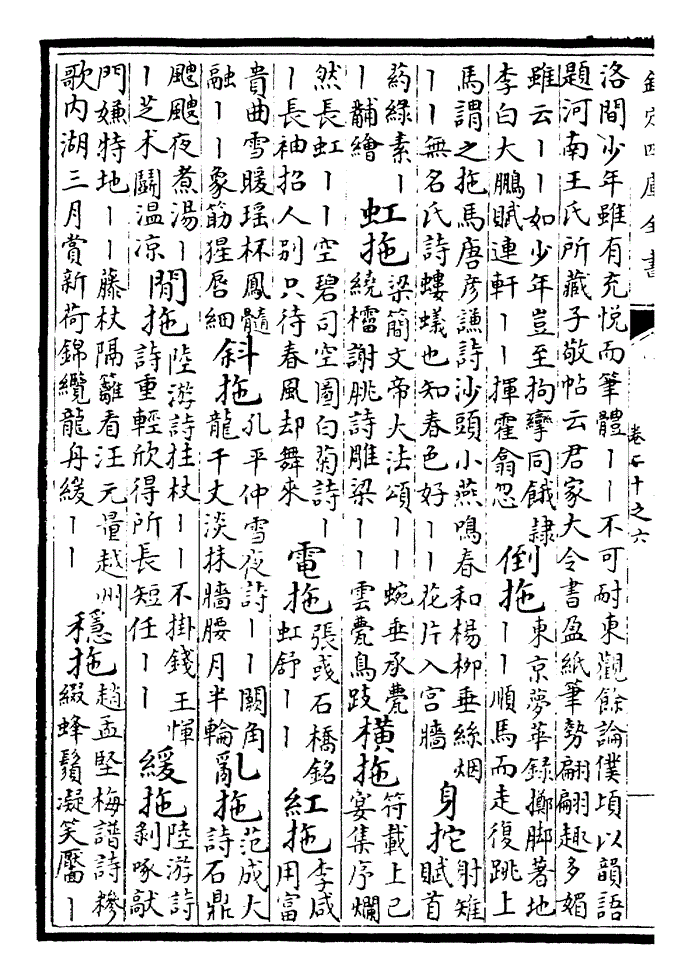 欽定四庫全書
卷七十之六
洛間少年雖有充悅而筆體丨丨不可耐東觀餘論僕頃以韻語
題河南王氏所藏子敬帖云君家大令書盈紙筆勢翩翩趣多媚
雖云丨丨如少年豈至拘攣同餓隷
李白大鵬賦連軒丨丨揮霍翕忽
倒拖
東京夢華錄擲脚著地
丨丨順馬而走復跳上
馬謂之拖馬唐彦謙詩沙頭小燕鳴春和楊柳垂絲烟
丨丨無名氏詩螻蟻也知春色好丨丨花片入宫牆
身拕
射雉
賦首
葯綠素丨
丨黼繪
虹拖
梁簡文帝大法頌丨丨蜿垂承甍
繞櫺謝朓詩雕梁丨丨雲甍鳥跂
橫拖
符載上巳
宴集序爛
然長虹丨丨空碧司空圖白菊詩丨
丨長袖招人别只待春風却舞來
電拖
張彧石橋銘
虹舒丨丨
紅拖
李咸
用富
貴曲雪暖瑶杯鳳髓
融丨丨象筯猩唇細
斜拖
孔平仲雪夜詩丨丨闕角
龍千丈淡抹牆腰月半輪
亂拖
范成大
詩石鼎
颼颼夜煮湯丨
丨芝术鬬温凉
閒拖
陸游詩拄杖丨丨不掛錢王惲
詩重輕欣得所長短任丨丨
緩拖
陸游詩
剥啄敲
門嫌特地丨丨藤杖隔籬看汪元量越州
歌内湖三月賞新荷錦纜龍舟緩丨丨
穩拖
趙孟堅梅譜詩糝
綴蜂鬚凝笑靨丨